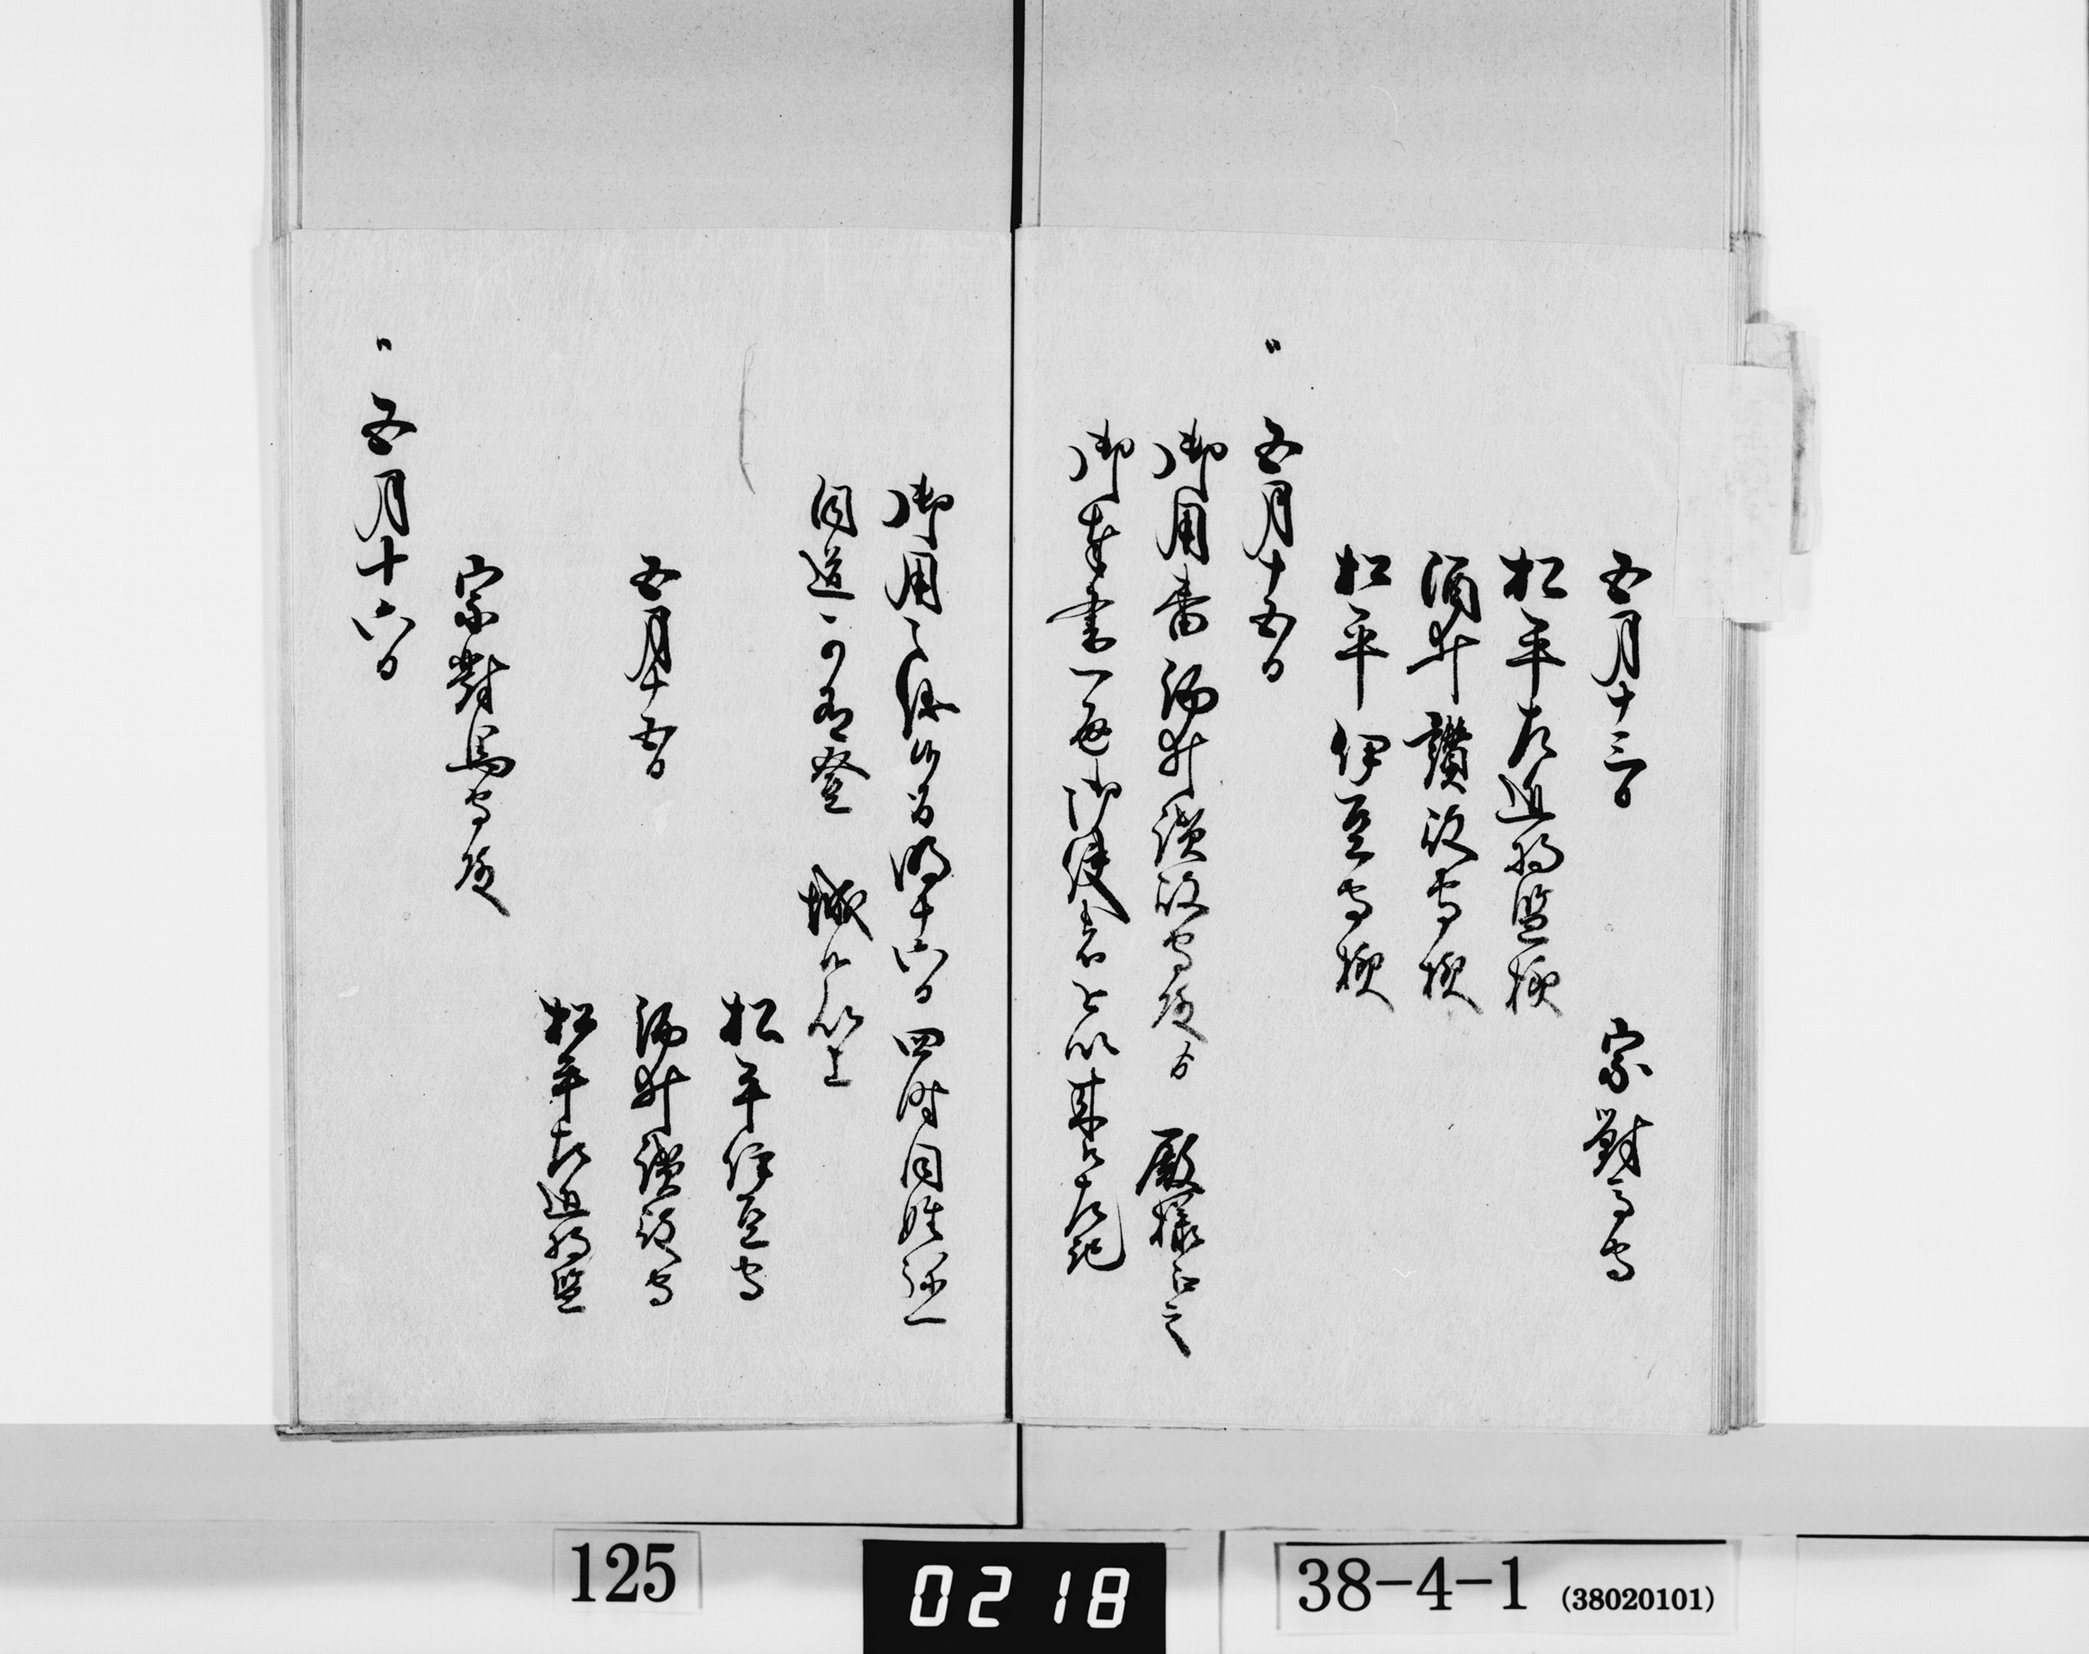 五月十三日 宗對馬守
松平左近将監様
酒井讃岐守様
松平伊豆守様
〃五月十五日
御用番酒井讃岐守殿ゟ 殿様江之
御奉書一通御使者を以来ル左記
御用之儀候間明十六日四時同姓弥一
同道ニ而可有登 城候以上
五月十五日
松平伊豆守
酒井讃岐守
松平左近将監
宗對馬守殿
〃五月十六日
125
0218
38-4-1 (38020101)